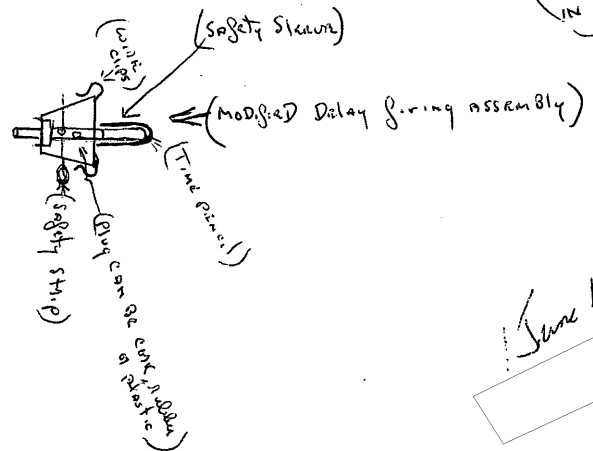 IN
(Safety Sleeve)
(wire
clips)
(MODIFIED Delay firing ASSEMBly)
(Time Pencil)
(Safety Strip)
(Plug can be cork, rubber
or plastic)
June